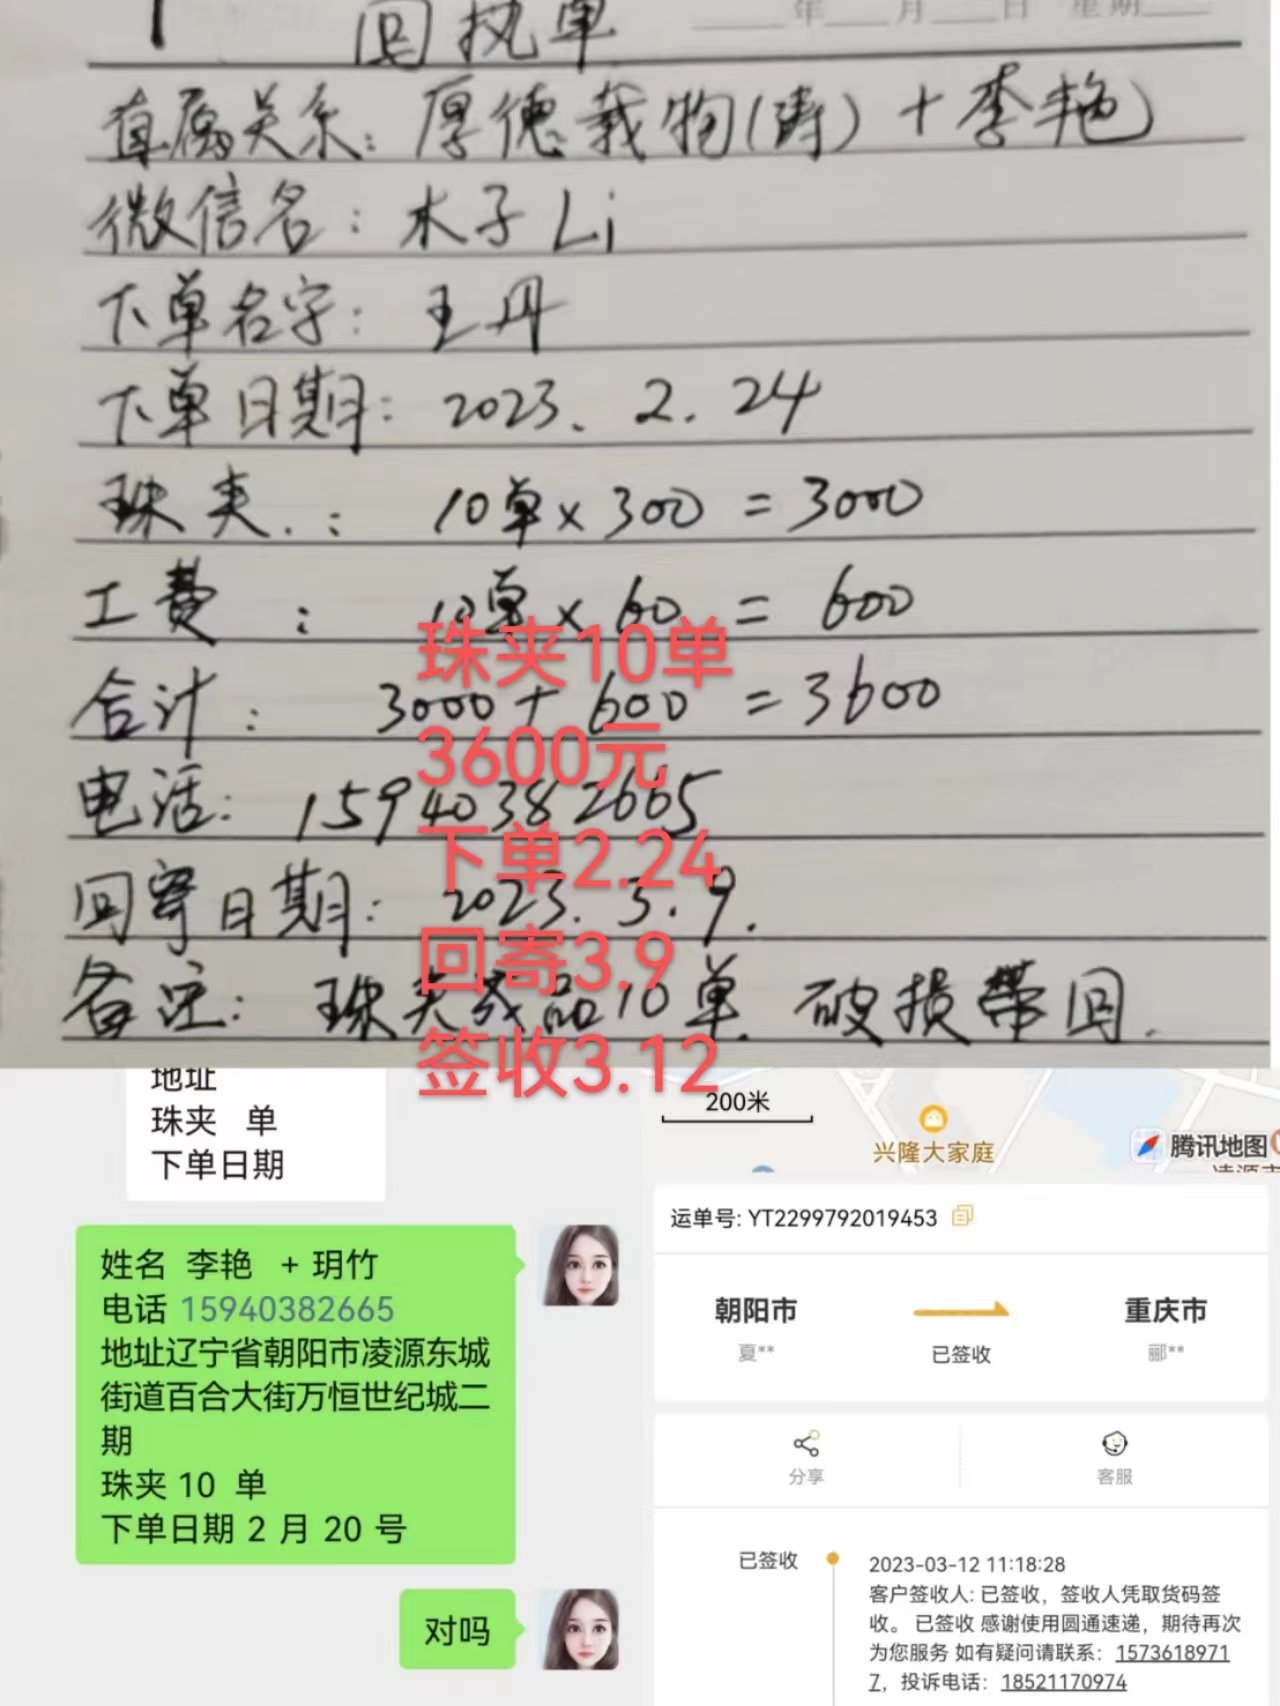 年 月 日 星期
回执单
直属关系: 厚德载物(涛) + 李艳)
微信名: 木子Li
下单名字: 王丹
下单日期: 2023. 2. 24
珠夹.: 10单×300 = 3000
工费: 10单×60 = 600
合计: 3000+600 = 3600
电话: 15940382665
回寄日期: 2023. 3. 9.
备注: 珠夹成品10单. 破损带回.
珠夹10单
3600元
下单2.24
回寄3.9
签收3.12
地址
珠夹 单
下单日期
姓名 李艳 + 玥竹
电话 15940382665
地址辽宁省朝阳市凌源东城
街道百合大街万恒世纪城二
期
珠夹 10 单
下单日期 2 月 20 号
对吗
200米
兴隆大家庭
腾讯地图
凌源市
运单号: YT2299792019453
朝阳市 重庆市
夏** 已签收 郦**
分享 客服
已签收 2023-03-12 11:18:28
客户签收人: 已签收，签收人凭取货码签
收。 已签收 感谢使用圆通速递，期待再次
为您服务 如有疑问请联系：1573618971
7，投诉电话：18521170974